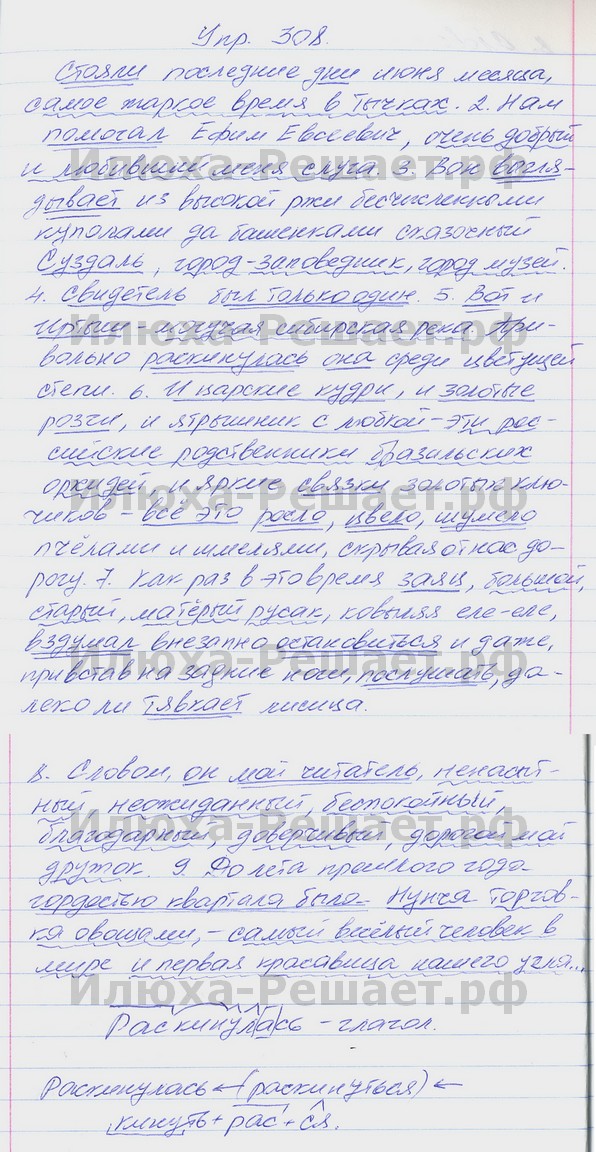 Упр. 308.
Стояли последние дни июня месяца,
самое жаркое время в Тычках. 2. Нам
помогал Ефим Евсеевич, очень добрый
и любивший меня слуга. 3. Вон вогля-
дывает из высокой ржи бесчисленными
куполами да башенками сказочный
Суздаль, город-заповедник, город музей.
4. Свидетель был только один. 5. Вот и
Иртыш - могучая сибирская река. При-
вольно раскинулась она среди цветущей
степи. 6. И царские кудри, и золотые
розги, и ятрышник с любкой - эти рос-
сийские родственники бразильских
орхидей, и яркие связки золотых клю-
чиков - всё это росло, цвело, шумело
пчёлами и шмелями, скрывая от нас до-
рогу. 7. Как раз в это время заяц, большой,
старый, матёрый русак, ковыляя еле-еле,
вздумал внезапно остановиться и даже,
привстав на задние ноги, послушать, да-
леко ли тявкает лисица.
8. Словом, он мой читатель, ненасыт-
ный, неожиданный, беспокойный,
благодарный, доверчивый, дорогой мой
дружок. 9. До лета прошлого года
гордостью квартала была Нунча торгов-
ка овощами, - самый весёлый человек в
мире и первая красавица нашего угла...
Раскинулась - глагол.
Раскинулась ← (раскинуться) ←
кинуть + рас + ся.
Илюха-Решает.рф
Илюха-Решает.рф
Илюха-Решает.рф
Илюха-Решает.рф
Илюха-Решает.рф
Илюха-Решает.рф
Илюха-Решает.рф